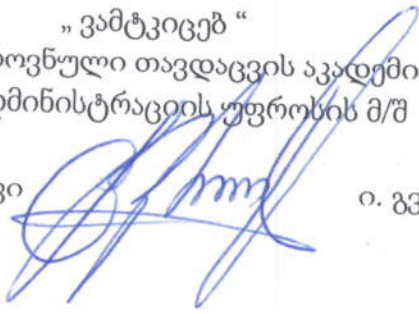 „ ვამტკიცებ “
ოვნული თავდაცვის აკადემი
დმინისტრაციის უფროსის მ/შ
ვი ი. გვ